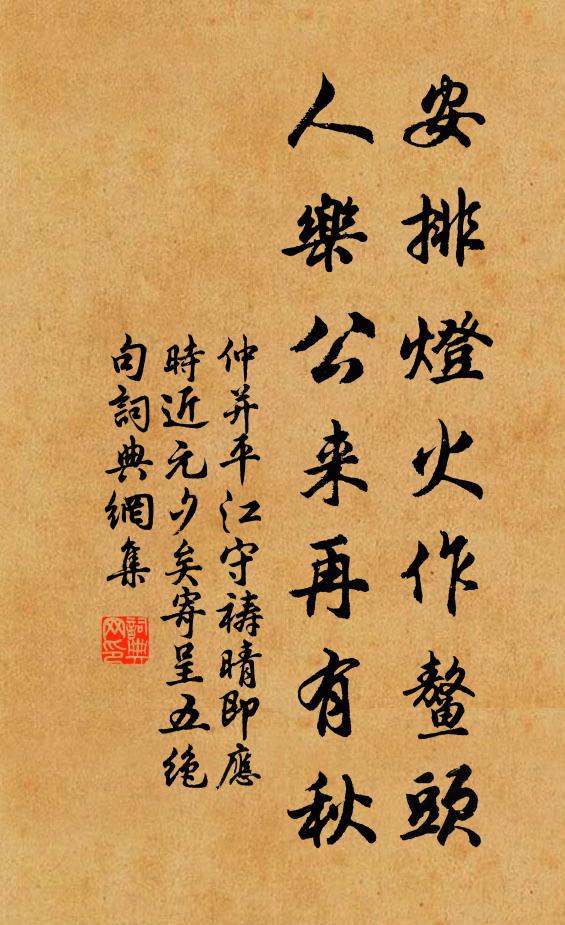 安排燈火作鰲頭
人樂公来再有秋
仲并平江守禱晴即應
時近元夕矣寄呈五絶
句詞典網集
詞典網印